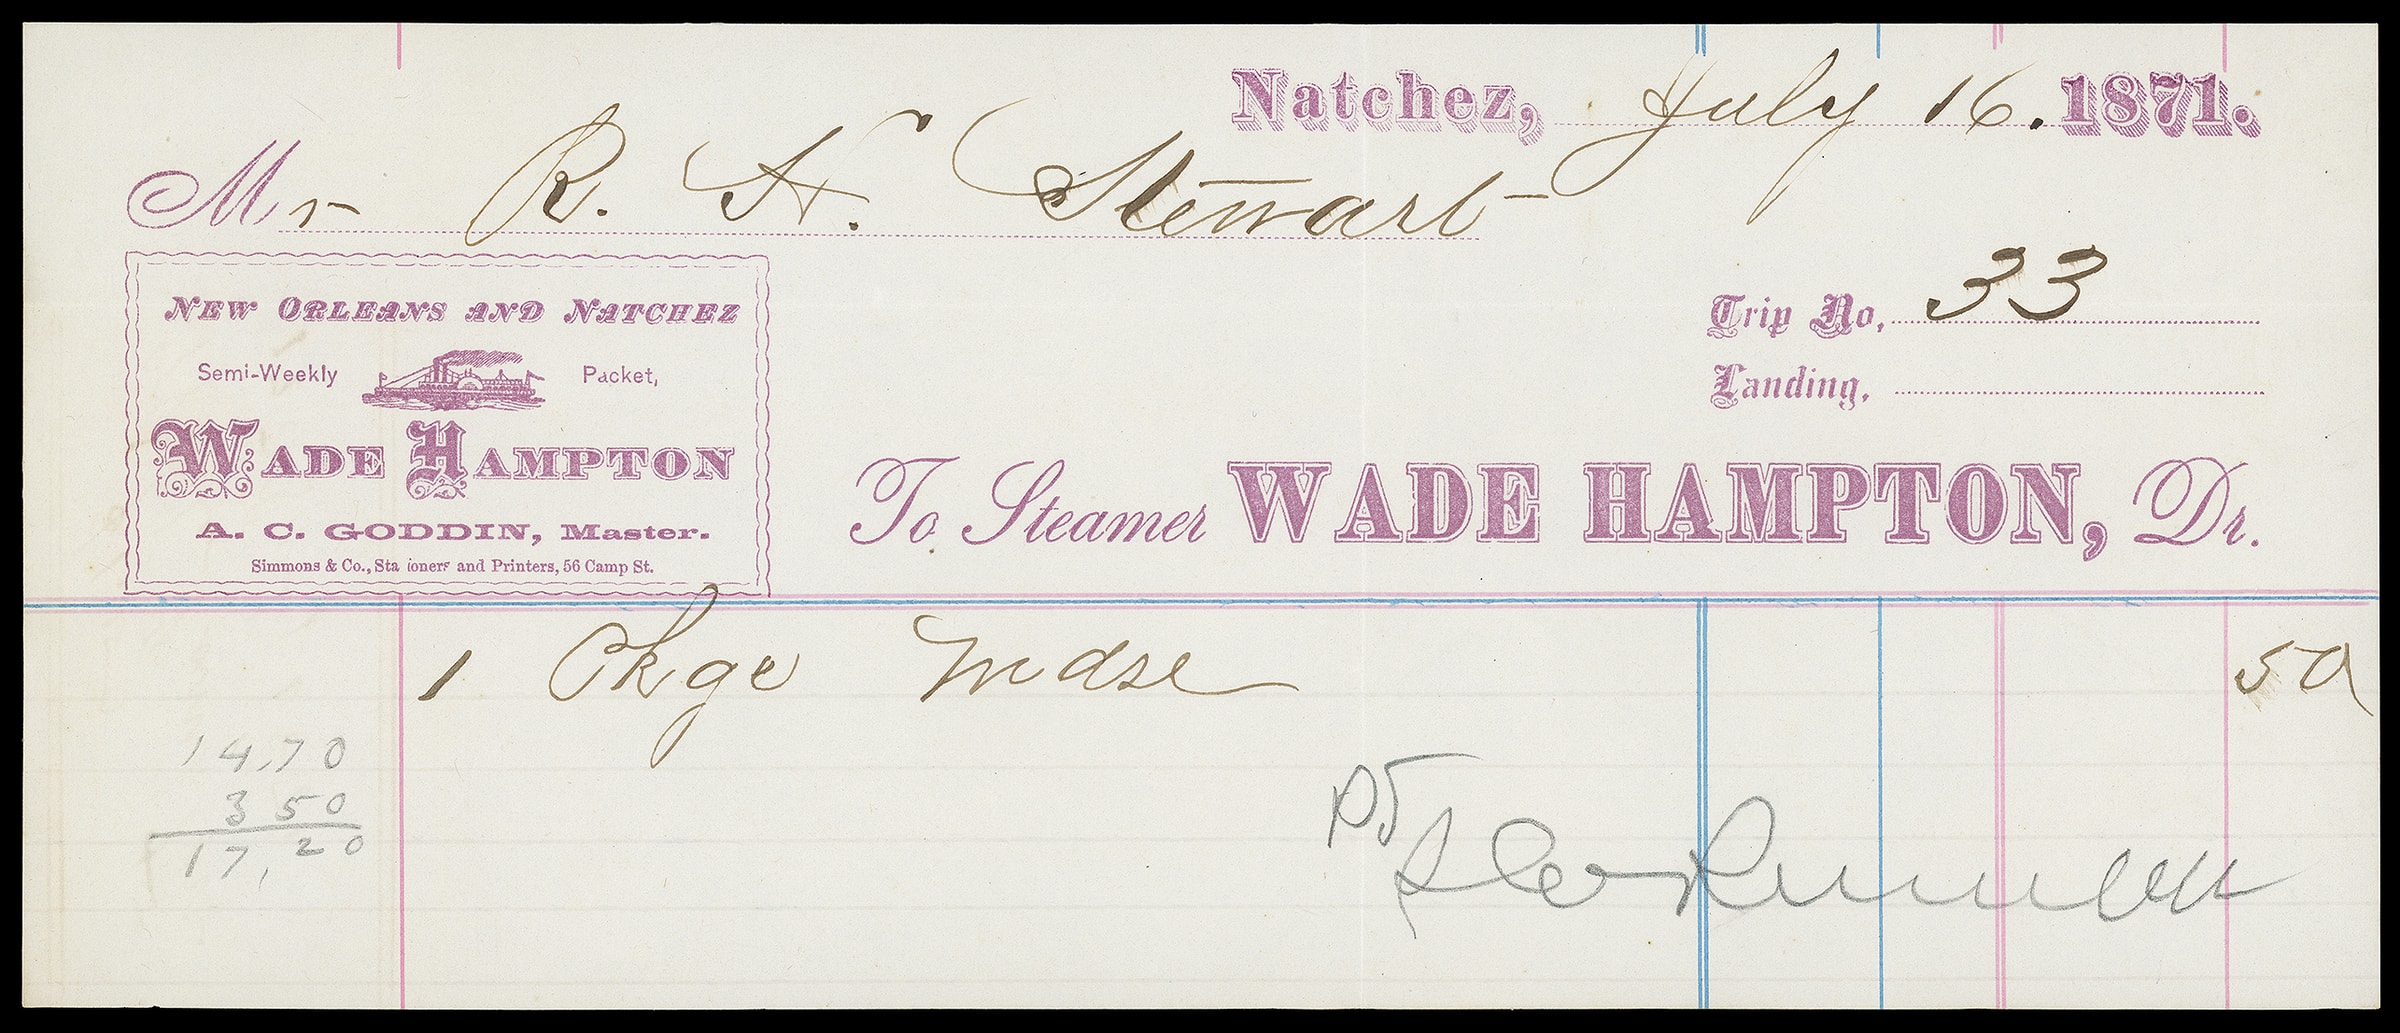 Natchez, July 16. 1871.
Mr R. H. Stewart
NEW ORLEANS AND NATCHEZ
Semi-Weekly Packet,
WADE HAMPTON
A. C. GODDIN, Master.
Simmons & Co., Sta ioners and Printers, 56 Camp St.
Trip No. 33
Landing.
To Steamer WADE HAMPTON, Dr.
1 Pkge Mdse 50
14.70
3 50
17, 20